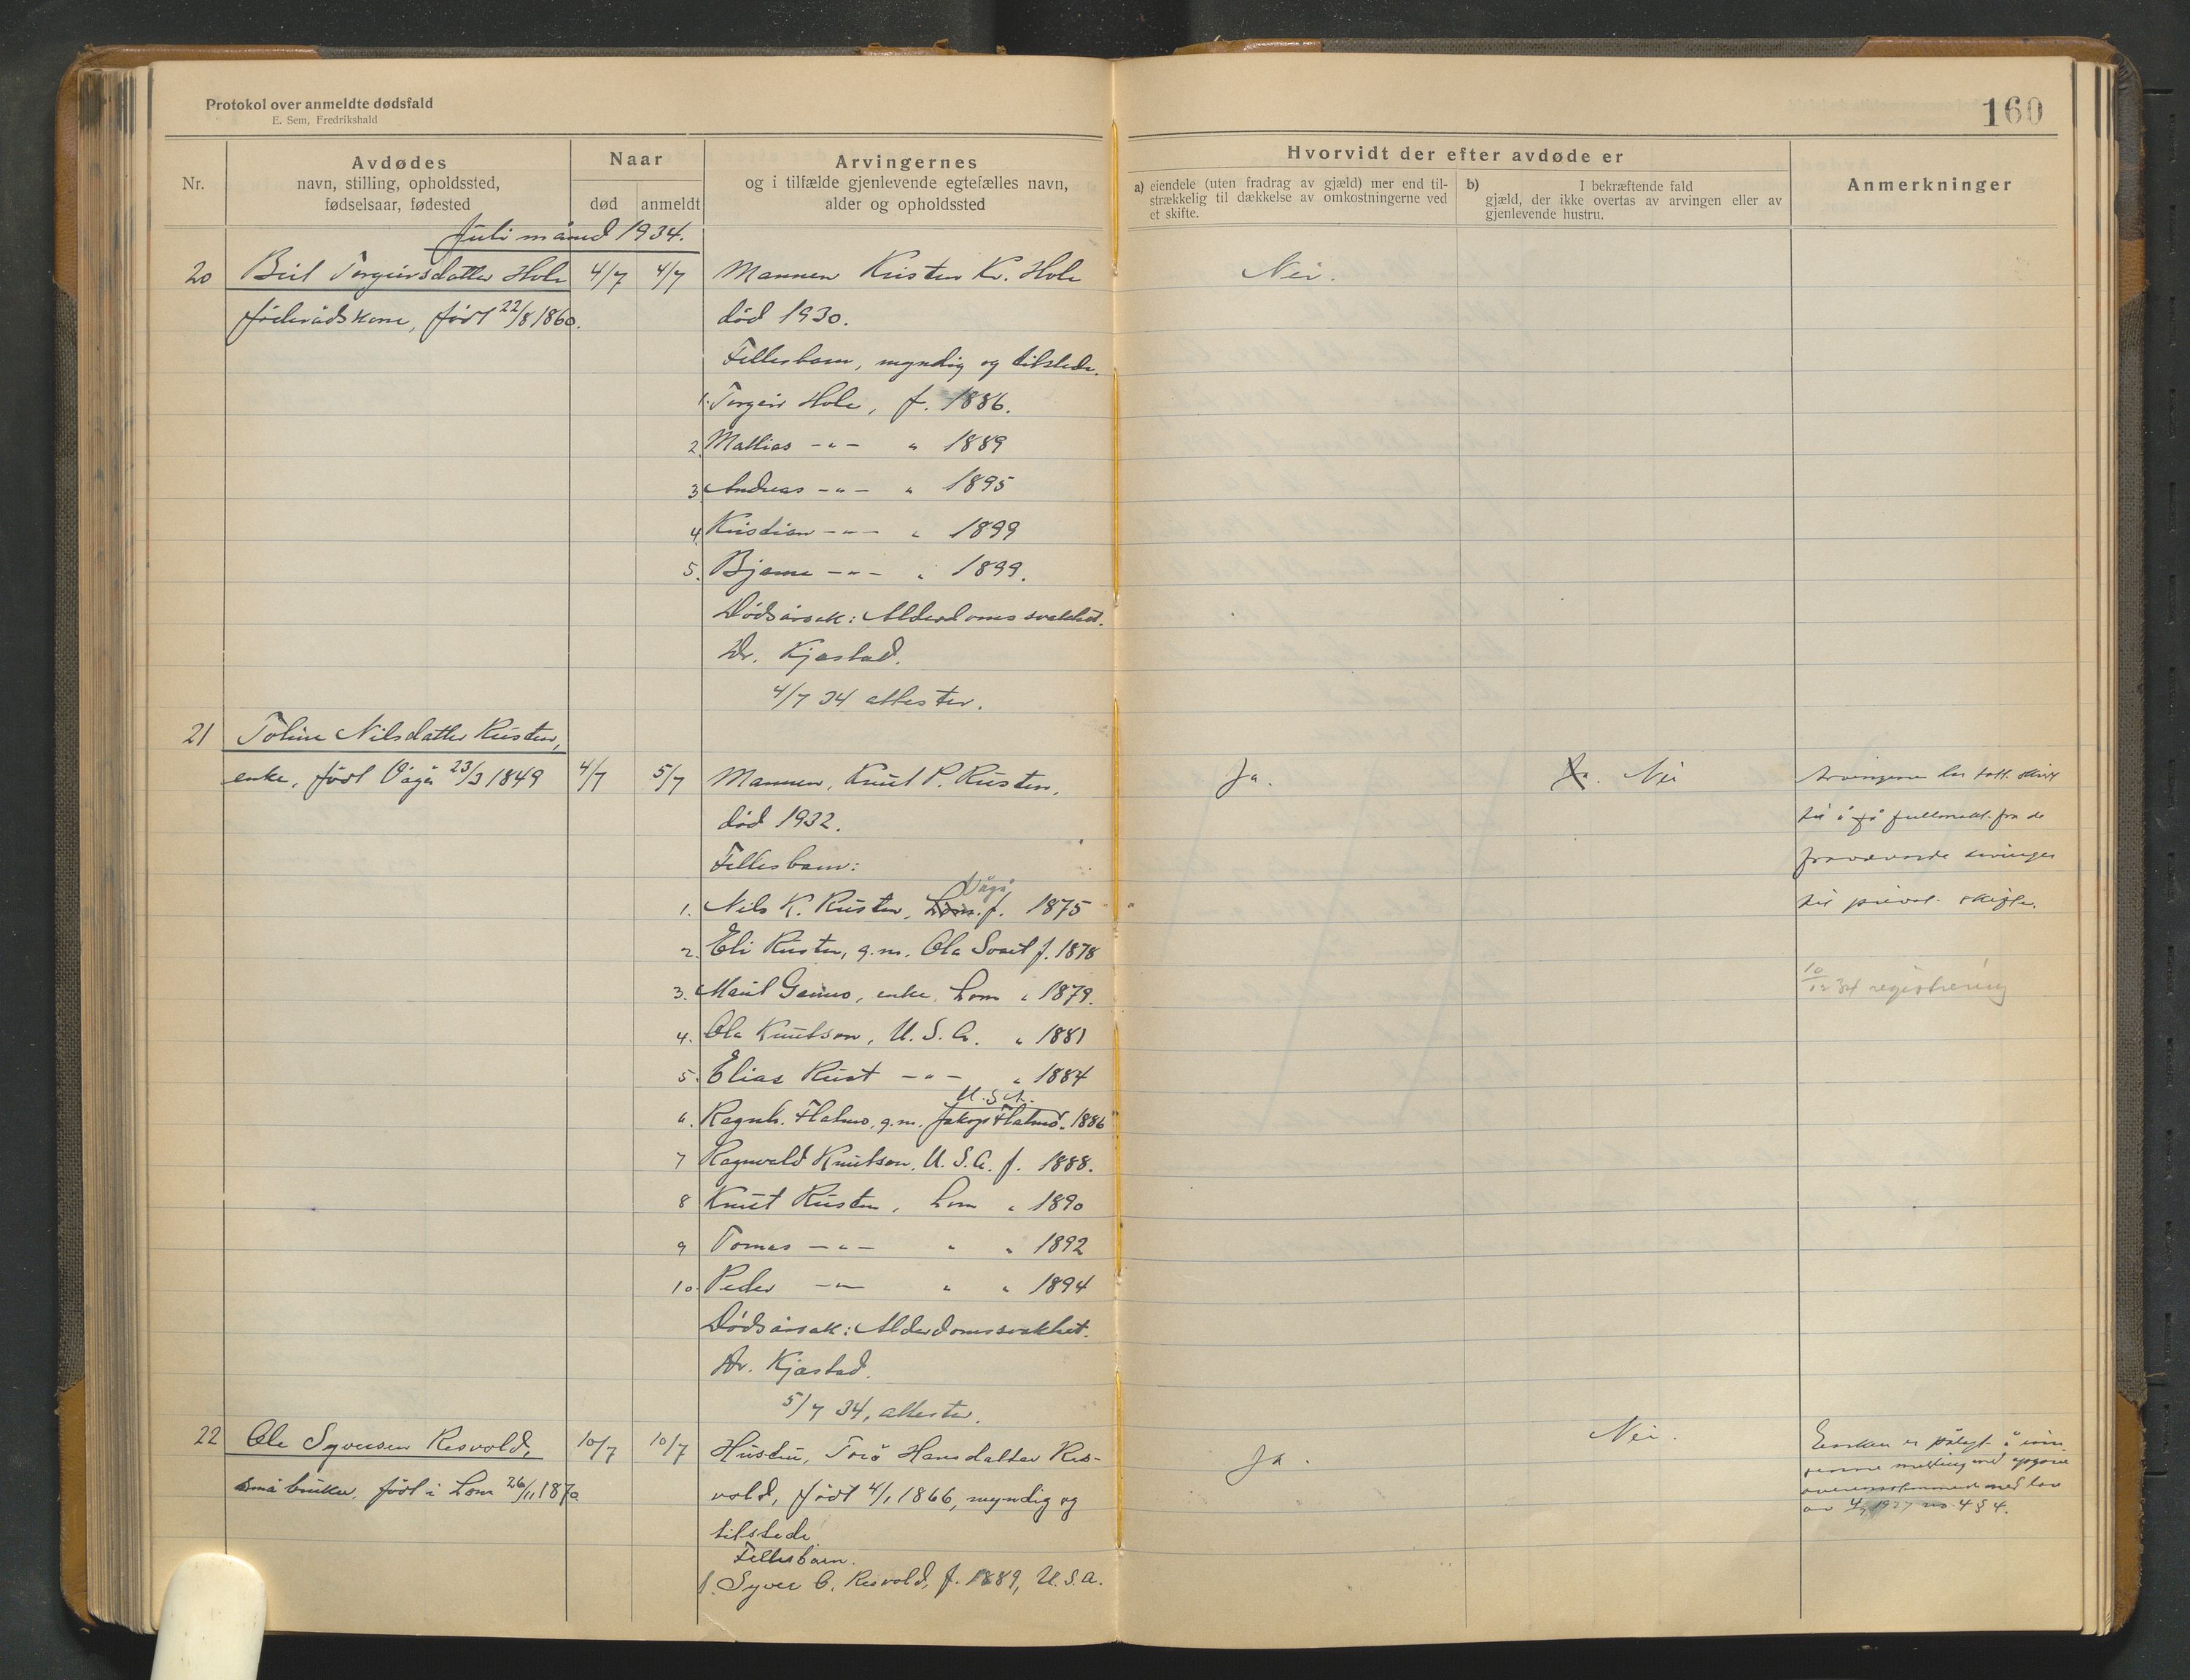 Protokol over anmeldte dødsfald
E. Sem, Fredrikshald
160
Nr.
Avdødes
navn, stilling, opholdssted,
fødselsaar, fødested
Naar
død
anmeldt
Arvingernes
og i tilfælde gjenlevende egtefælles navn,
alder og opholdssted
Hvorvidt der efter avdøde er
a) eiendele (uten fradrag av gjæld) mer end til-
strækkelig til dækkelse av omkostningerne ved
et skifte.
b) I bekræftende fald
gjæld, der ikke overtas av arvingen eller av
gjenlevende hustru.
Anmerkninger
Juli måned 1934.
20 Brit Torgeirsdatter Hole 4/7 4/7 Mannen Kristen Kr. Hole Nei.
føderådskone, født 22/8 1860. død 1930.
Fellesbarn, myndig og tilstede.
1. Torgeir Hole, f. 1886.
2. Mattias -"- " 1889
3. Andreas -"- " 1895
4. Kristian -"- " 1899
5. Bjarne -"- " 1899.
Dødsårsak: Alderdomssvakhet.
Dr. Kjæstad.
4/7 34 attester.
21 Toline Nilsdatter Rusten,
enke, født Vågå 23/3 1849 4/7 5/7 Mannen, Knut P. Rusten, Ja. Ja. Nei Arvingerne har tatt skritt
død 1932. til å få fullmakt fra de
Fellesbarn: fraværende arvinger
Vågå
1. Nils K. Rusten, Lom. f. 1875 " til privat skifte.
2. Eli Rusten, g.m. Ola f. 1878
3. Marit enke, Lom " 1879. 10/12 34 registrering
4. Ola Knutson, U.S.A. " 1881
5. Elias Rust -"- " 1884
U.S.A.
6. Ragnh. Flatmo, g.m. Jakop Flatmo. 1886
7 Ragnvald Knutson, U.S.A. f. 1888.
8 Knut Rusten, Lom " 1890
9 Tomas -"- " " 1892
10. Peder -"- " " 1894
Dødsårsak: Alderdomssvakhet.
Dr. Kjæstad.
5/7 34, attester.
22 Ole Syversen Resvold, 10/7 10/7 Hustru, Torø Hansdatter Res- Ja. Nei. Enken er pålagt å inn-
småbruker, født i Lom 26/11 1870 vold, født 4/1 1866, myndig og melding med opgave
tilstede. overensstemmende med lov
Fellesbarn. av 4/3 1927 no. 4 § 4.
1. Syver O. Resvold, f. 1889, U.S.A.